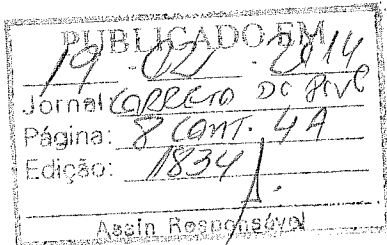 PUBLICADO EM
19 - 02 - 2014
Jornal CORREIO DO POVO
Página: 8 CONT. 4A
Edição: 1834
Assin Responsável